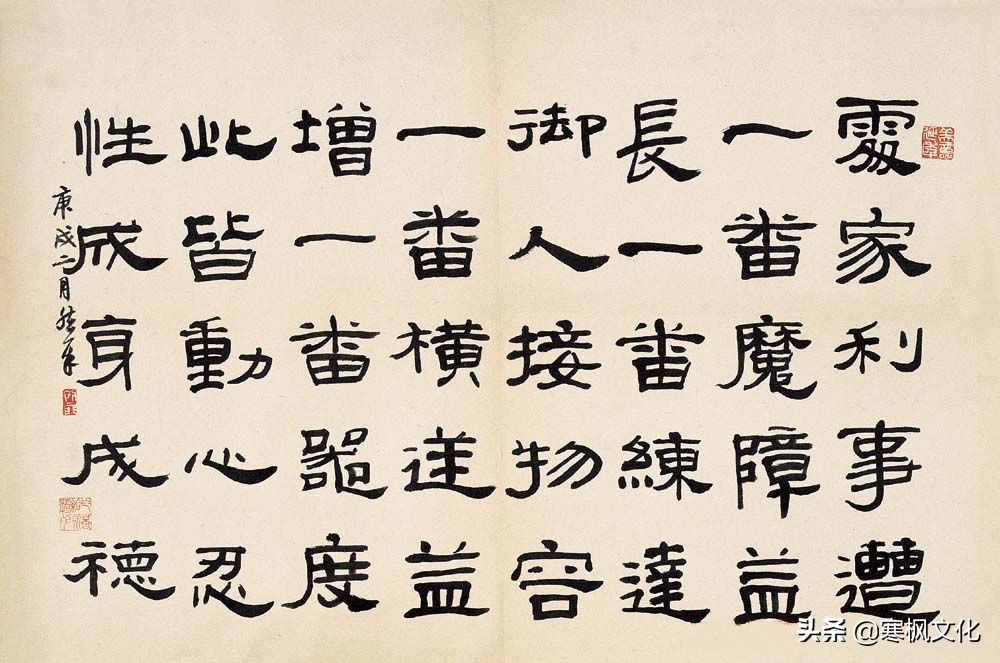 處家利事遭
一番魔障益
長一番練達
御人接物容
一番橫逆益
增一番器度
此皆動心忍
性成身成德
庚戌二月
头条 @寒枫文化